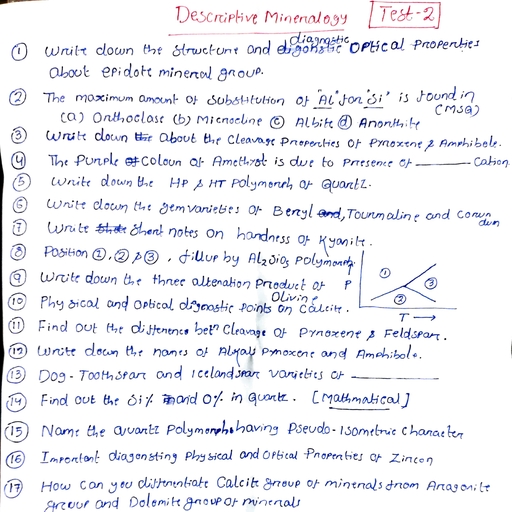 Descriptive Mineralogy Test-2
diagnostic
① Write down the structure and Optical Properties
about epidote mineral group.
② The maximum amount of substitution of "Al" for "Si" is found in
(MSQ)
(a) Orthoclase (b) Microcline (c) Albite (d) Anorthite
③ Write down about the Cleavage Properties of Pyroxene & Amphibole.
④ The Purple Colour of Amethyst is due to Presence of ______ Cation
⑤ Write down the HP & HT Polymorph of Quartz.
⑥ Write down the gem varieties of Beryl, Tourmaline and Corundum
⑦ Write Short notes on hardness of Kyanite.
⑧ Position ①, ② & ③, fillup by Al2SiO5 Polymorph
P ① ② ③
T →
⑨ Write down the three alteration Product of
Olivine
⑩ Physical and Optical dignostic Points on Calcite.
⑪ Find out the difference betn Cleavage of Pyroxene & Feldspar.
⑫ Write down the names of Alkali Pyroxene and Amphibole.
⑬ Dog-Toothspar and Icelandspar varieties of ______
⑭ Find out the Si% and O% in quartz. [Mathmatical]
⑮ Name the Quartz Polymorph having Pseudo-Isometric Character
⑯ Important diagonsting Physical and Optical Properties of Zircon
⑰ How can you differentiate Calcite group of minerals from Aragonite
group and Dolomite group of minerals